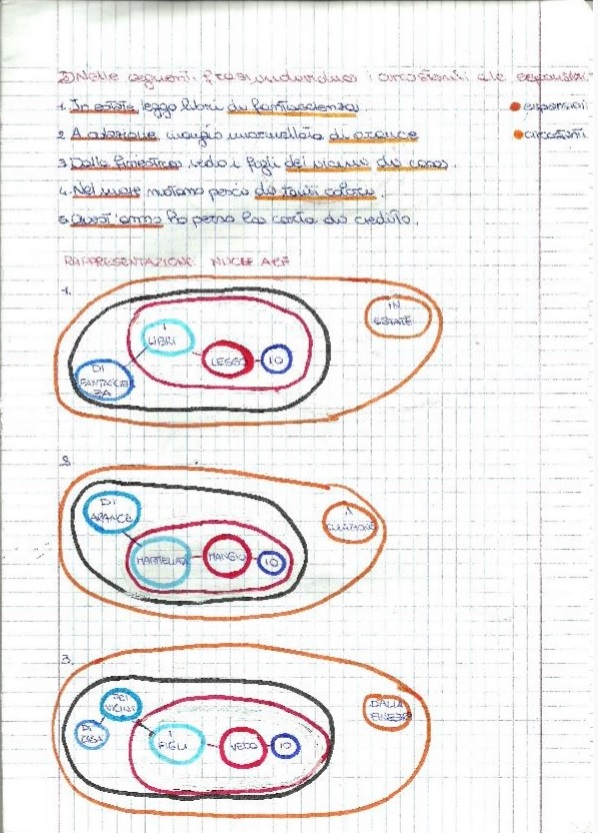 2) Nelle seguenti frasi, individua i circostanti e le espansioni.
1. In estate leggo libri di fantascienza.
● espansioni
2 A colazione mangio marmellata di arance
● circostanti
3 Dalla finestra vedo i figli dei vicini di casa.
4. Nel mare nuotano pesci di tanti colori.
5 Quest'anno ho perso la carta di credito.
RAPPRESENTAZIONE
1.
I LIBRI
LEGGO
IO
IN ESTATE
DI
2.
DI ARANCE
MARMELLATA
MANGIO
IO
A COLAZIONE
3.
DEI VICINI
DI CASA
I FIGLI
VEDO
IO
DALLA